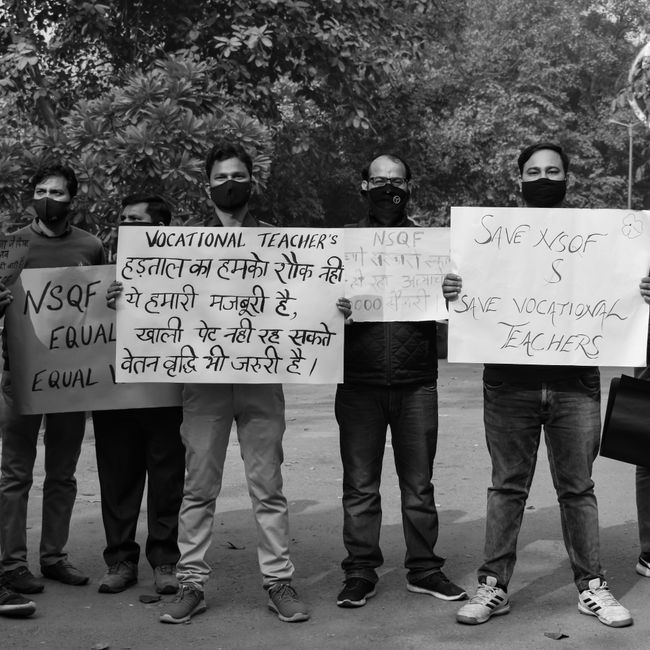 NSQF
EQUAL
EQUAL
VOCATIONAL TEACHER'S
हड़ताल का हमको शौक नही
ये हमारी मजबूरी है,
खाली पेट नही रह सकते
वेतन वृद्धि भी जरुरी है।
NSQF
SAVE NSQF
S
SAVE VOCATIONAL
TEACHERS